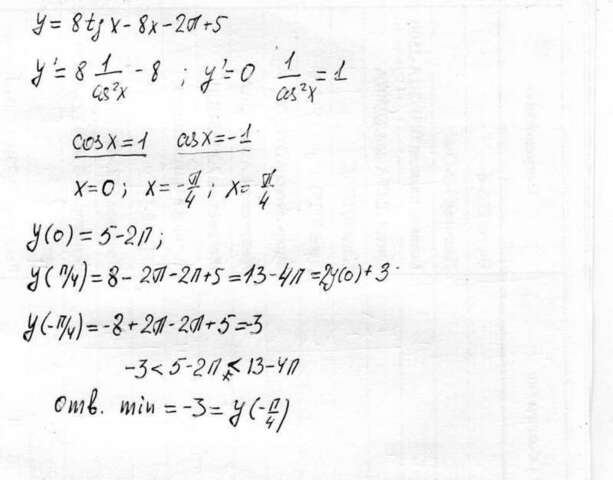 y = 8 tg x - 8x - 2π + 5
y' = 8 1/cos²x - 8 ; y' = 0 1/cos²x = 1
cos x = 1 cos x = -1
x = 0 ; x = -π/4 ; x = π/4
y(0) = 5 - 2π ;
y(π/4) = 8 - 2π - 2π + 5 = 13 - 4π = 2y(0) + 3
y(-π/4) = -8 + 2π - 2π + 5 = -3
-3 < 5 - 2π < 13 - 4π
Отв. min = -3 = y(-π/4)